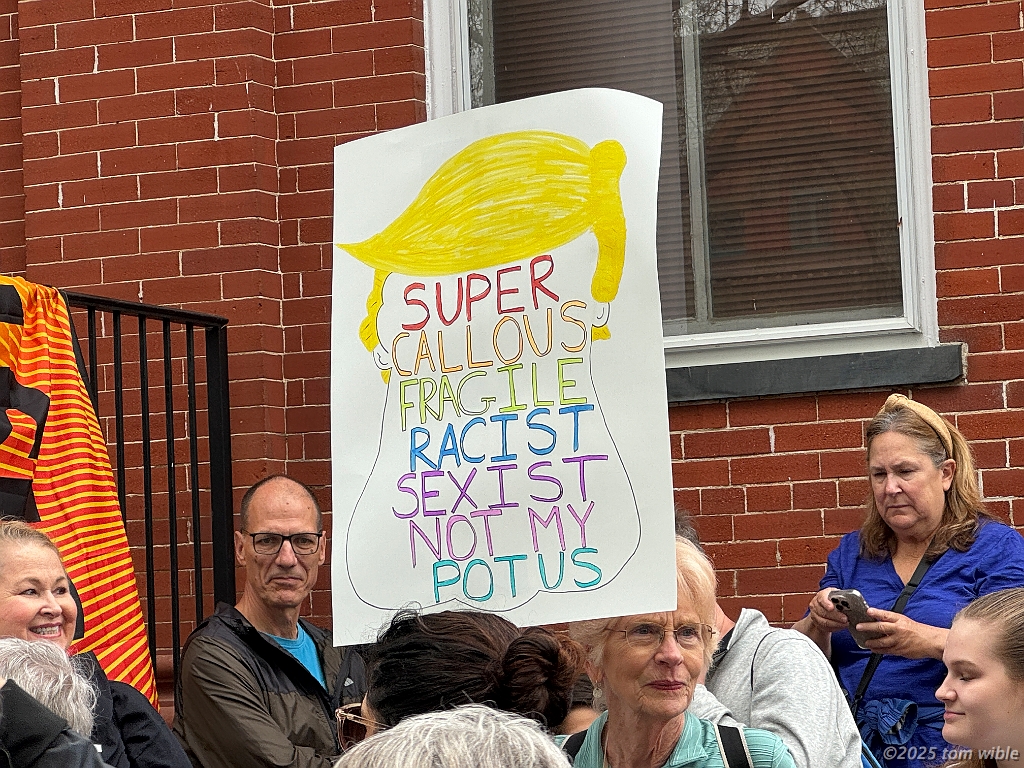 SUPER
CALLOUS
FRAGILE
RACIST
SEXIST
NOT MY
POTUS
©2025 tom wible